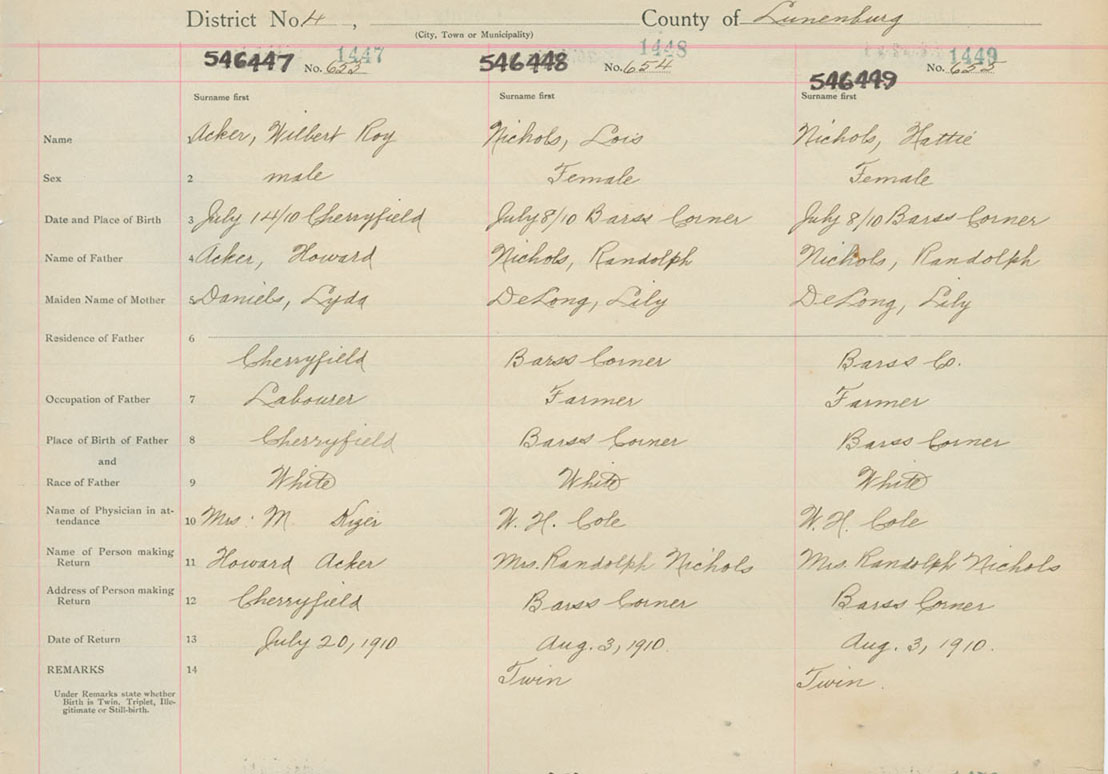 District No. 4, County of Lunenburg
(City, Town or Municipality)
546447 No. 653 1447 546448 No. 654 1448 546449 No. 655 1449
Surname first Surname first Surname first
Name 1 Acker, Wilbert Roy Nichols, Lois Nichols, Hattie
Sex 2 male Female Female
Date and Place of Birth 3 July 14/10 Cherryfield July 8/10 Barss Corner July 8/10 Barss Corner
Name of Father 4 Acker, Howard Nichols, Randolph Nichols, Randolph
Maiden Name of Mother 5 Daniels, Lyda DeLong, Lily DeLong, Lily
Residence of Father 6
Cherryfield Barss Corner Barss C.
Occupation of Father 7 Labourer Farmer Farmer
Place of Birth of Father 8 Cherryfield Barss Corner Barss Corner
and
Race of Father 9 White White White
Name of Physician in at-
tendance 10 Mrs. M. W. H. Cole W. H. Cole
Name of Person making
Return 11 Howard Acker Mrs. Randolph Nichols Mrs. Randolph Nichols
Address of Person making
Return 12 Cherryfield Barss Corner Barss Corner
Date of Return 13 July 20, 1910 Aug. 3, 1910. Aug. 3, 1910.
REMARKS 14 Twin Twin.
Under Remarks state whether
Birth is Twin, Triplet, Ille-
gitimate or Still-birth.